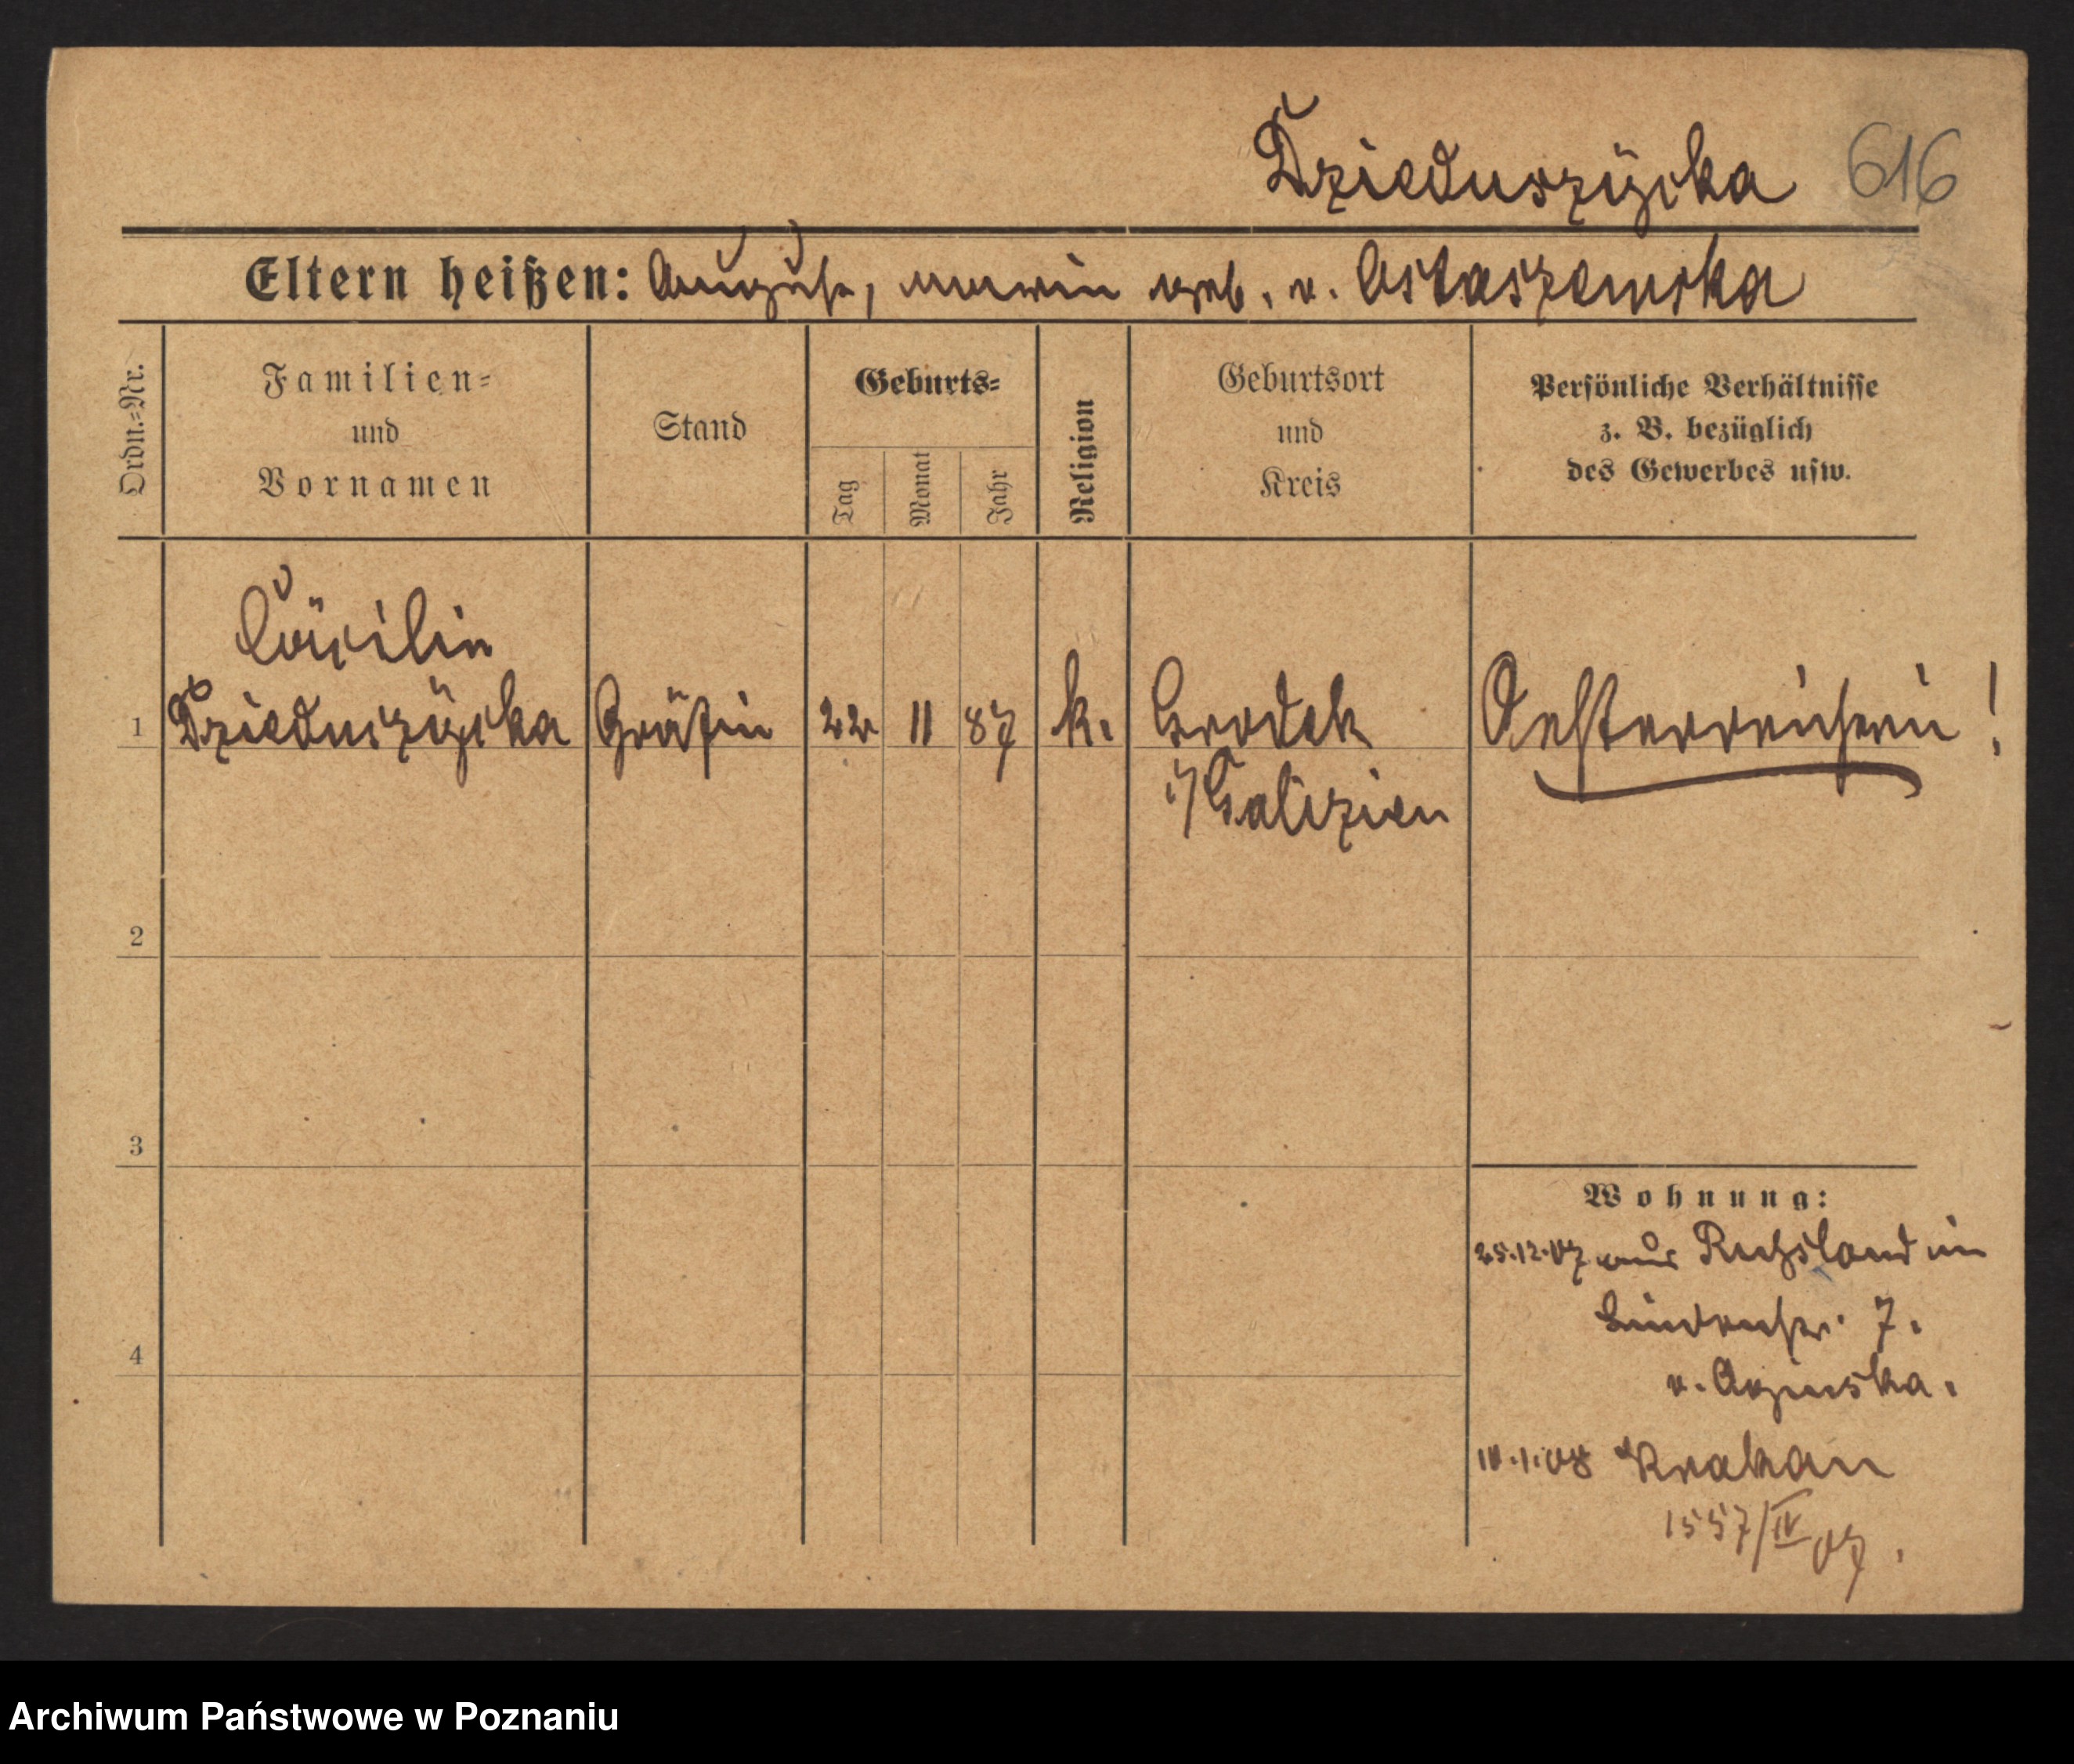 Dzieduszÿcka 616
Eltern heißen: August, Maria geb. v. Ostaszewska
Ordn.=Nr.
Familien=
und
Vornamen
Stand
Geburts=
Tag
Monat
Jahr
Religion
Geburtsort
und
Kreis
Persönliche Verhältnisse
z. B. bezüglich
des Gewerbes usw.
Cäcilie
1 Dzieduszÿcka Gräfin 22 11 87 k. Grodek Oesterreicherin!
i/Galizien
2
3
Wohnung:
25.12.07 aus Rußland in
Lindenstr. 7.
4
10.1.08 Krakau
1557/IV 07.
Archiwum Państwowe w Poznaniu